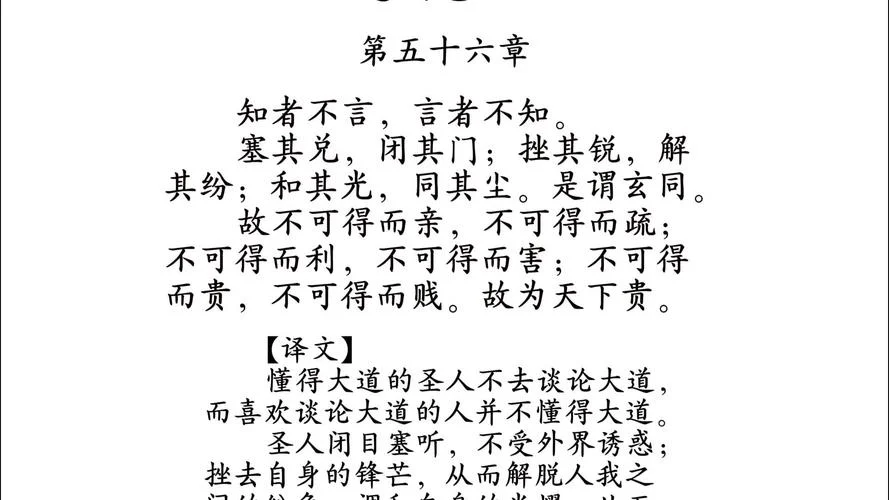 第五十六章
知者不言，言者不知。
塞其兑，闭其门；挫其锐，解
其纷；和其光，同其尘。是谓玄同。
故不可得而亲，不可得而疏；
不可得而利，不可得而害；不可得
而贵，不可得而贱。故为天下贵。
【译文】
懂得大道的圣人不去谈论大道，
而喜欢谈论大道的人并不懂得大道。
圣人闭目塞听，不受外界诱惑；
挫去自身的锋芒，从而解脱人我之